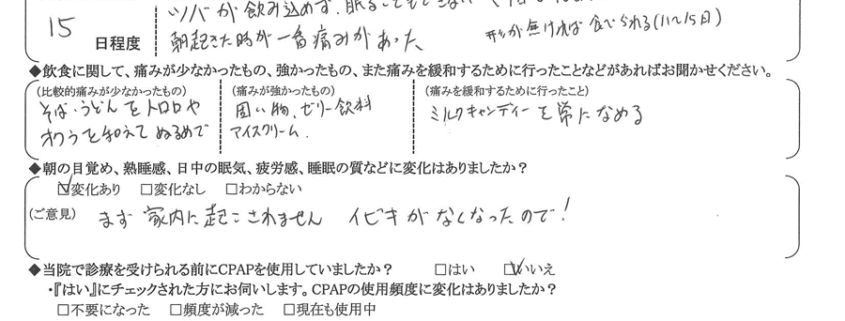 ツバが飲み込めず、眠ることもできない
15
日程度
朝起きた時が一番痛みがあった
形が無ければ食べられる(11〜15日)
◆飲食に関して、痛みが少なかったもの、強かったもの、また痛みを緩和するために行ったことなどがあればお聞かせください。
(比較的痛みが少なかったもの)
(痛みが強かったもの)
(痛みを緩和するために行ったこと)
そば・うどんをトロロや
固い物、ゼリー飲料
ミルクキャンディーを常になめる
オクラを和えてぬるめで
アイスクリーム.
◆朝の目覚め、熟睡感、日中の眠気、疲労感、睡眠の質などに変化はありましたか?
☑変化あり □変化なし □わからない
(ご意見) まず家内に起こされません イビキがなくなったので!
◆当院で診療を受けられる前にCPAPを使用していましたか? □はい ☑いいえ
・『はい』にチェックされた方にお伺いします。CPAPの使用頻度に変化はありましたか?
□不要になった □頻度が減った □現在も使用中